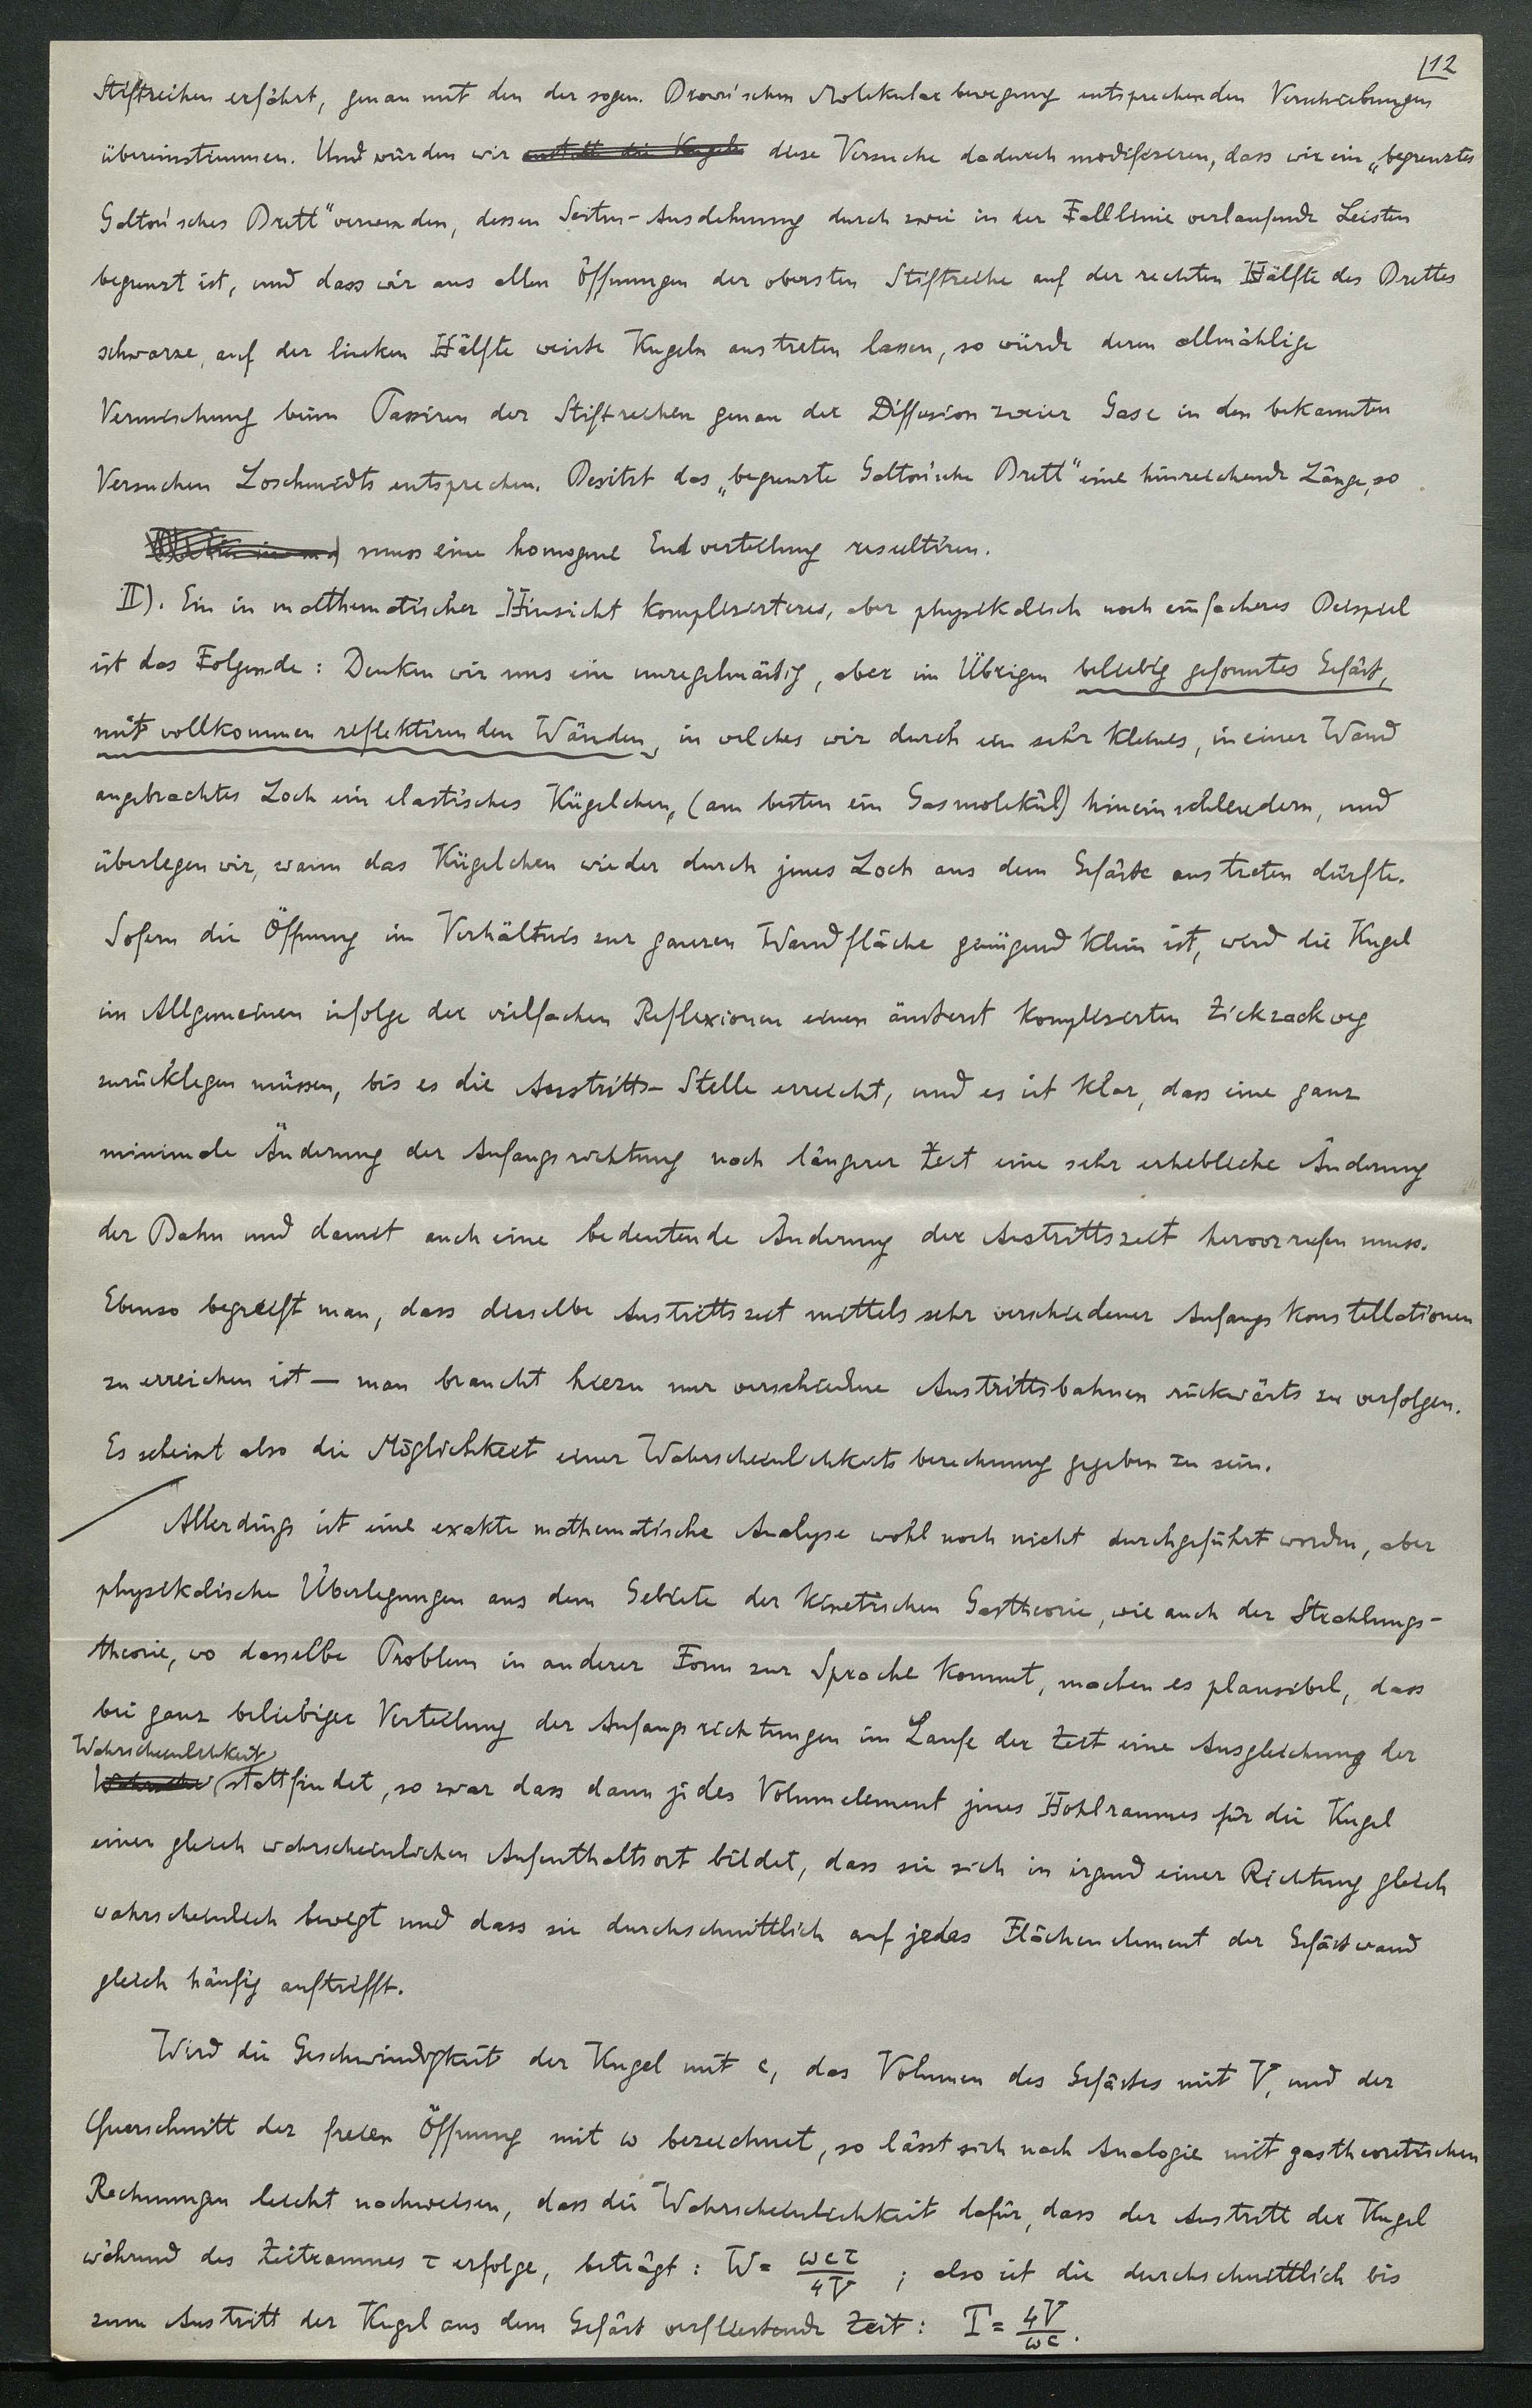 12
Stiftreihen erfährt, genau mit den der sogen. Brown'schen Molekularbewegung entsprechenden Verschiebungen
übereinstimmen. Und würden wir anstatt die Kugeln diese Versuche dadurch modifizieren, dass wir ein „begrenztes
Galton'sches Brett" verwenden, dessen Seiten-Ausdehnung durch zwei in der Falllinie verlaufende Leisten
begrenzt ist, und dass wir aus allen Öffnungen der obersten Stiftreihe auf der rechten Hälfte des Brettes
schwarze, auf der linken Hälfte weisse Kugeln austreten lassen, so würde deren allmählige
Vermischung beim Passiren der Stiftreihen genau der Diffusion zweier Gase in den bekannten
Versuchen Loschmidts entsprechen. Besitzt das „begrenzte Galton'sche Brett" eine hinreichende Länge, so
muss eine homogene Endverteilung resultiren.
II). Ein in mathematischer Hinsicht komplizierteres, aber physikalisch noch einfacheres Beispiel
ist das Folgende: Denken wir uns ein unregelmässig, aber im Übrigen beliebig geformtes Gefäss,
mit vollkommen reflektirenden Wänden, in welches wir durch ein sehr kleines, in einer Wand
angebrachtes Loch ein elastisches Kügelchen, (am besten ein Gasmolekül) hineinschleudern, und
überlegen wir, wann das Kügelchen wieder durch jenes Loch aus dem Gefässe austreten dürfte.
Sofern die Öffnung im Verhältnis zur ganzen Wandfläche genügend klein ist, wird die Kugel
im Allgemeinen infolge der vielfachen Reflexionen einen äusserst komplizierten Zickzackweg
zurücklegen müssen, bis es die Austritts-Stelle erreicht, und es ist klar, dass eine ganz
minimale Änderung der Anfangsrichtung nach längerer Zeit eine sehr erhebliche Änderung
der Bahn und damit auch eine bedeutende Änderung der Austrittszeit hervorrufen muss.
Ebenso begreift man, dass dieselbe Austrittszeit mittels sehr verschiedener Anfangskonstellationen
zu erreichen ist — man braucht hiezu nur verschiedene Austrittsbahnen rückwärts zu verfolgen.
Es scheint also die Möglichkeit einer Wahrscheinlichkeitsberechnung gegeben zu sein.
Allerdings ist eine exakte mathematische Analyse wohl noch nicht durchgeführt worden, aber
physikalische Überlegungen aus dem Gebiete der kinetischen Gastheorie, wie auch der Strahlungs-
theorie, wo dasselbe Problem in anderer Form zur Sprache kommt, machen es plausibel, dass
bei ganz beliebiger Verteilung der Anfangsrichtungen im Laufe der Zeit eine Ausgleichung der
Wahrscheinlichkeit
Wahrsche stattfindet, so zwar dass dann jedes Volumelement jenes Hohlraumes für die Kugel
einen gleich wahrscheinlichen Aufenthaltsort bildet, dass sie sich in irgend einer Richtung gleich
wahrscheinlich bewegt und dass sie durchschnittlich auf jedes Flächenelement der Gefässwand
gleich häufig auftrifft.
Wird die Geschwindigkeit der Kugel mit c, das Volumen des Gefässes mit V, und der
Querschnitt der freien Öffnung mit ω bezeichnet, so lässt sich nach Analogie mit gastheoretischen
Rechnungen leicht nachweisen, dass die Wahrscheinlichkeit dafür, dass der Austritt der Kugel
während des Zeitraumes τ erfolge, beträgt: W = ωcτ/4V ; also ist die durchschnittlich bis
zum Austritt der Kugel aus dem Gefäss verfliessende Zeit: T = 4V/ωc.